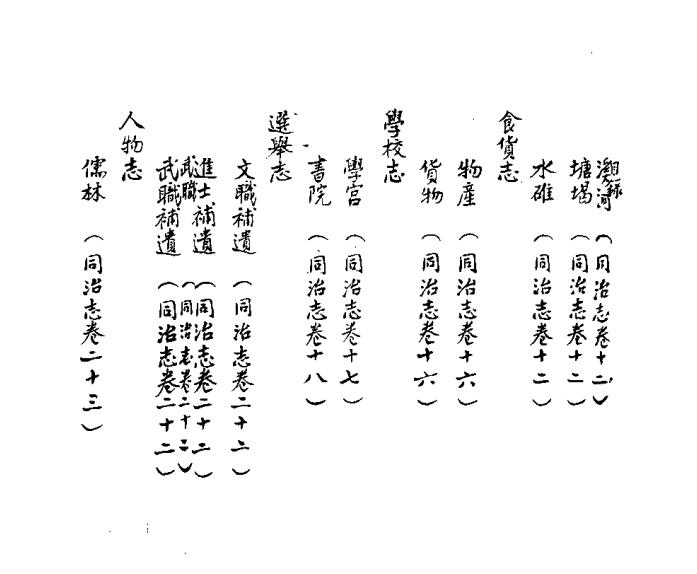 河（同治志卷十二）
塘堨（同治志卷十二）
水碓（同治志卷十二）
食貨志
物產（同治志卷十六）
貨物（同治志卷十六）
學校志
學宮（同治志卷十七）
書院（同治志卷十八）
選舉志
文職補遺（同治志卷二十二）
進士補遺（同治志卷二十二）
武職（同治志卷二十二）
武職補遺（同治志卷二十二）
人物志
儒林（同治志卷二十三）